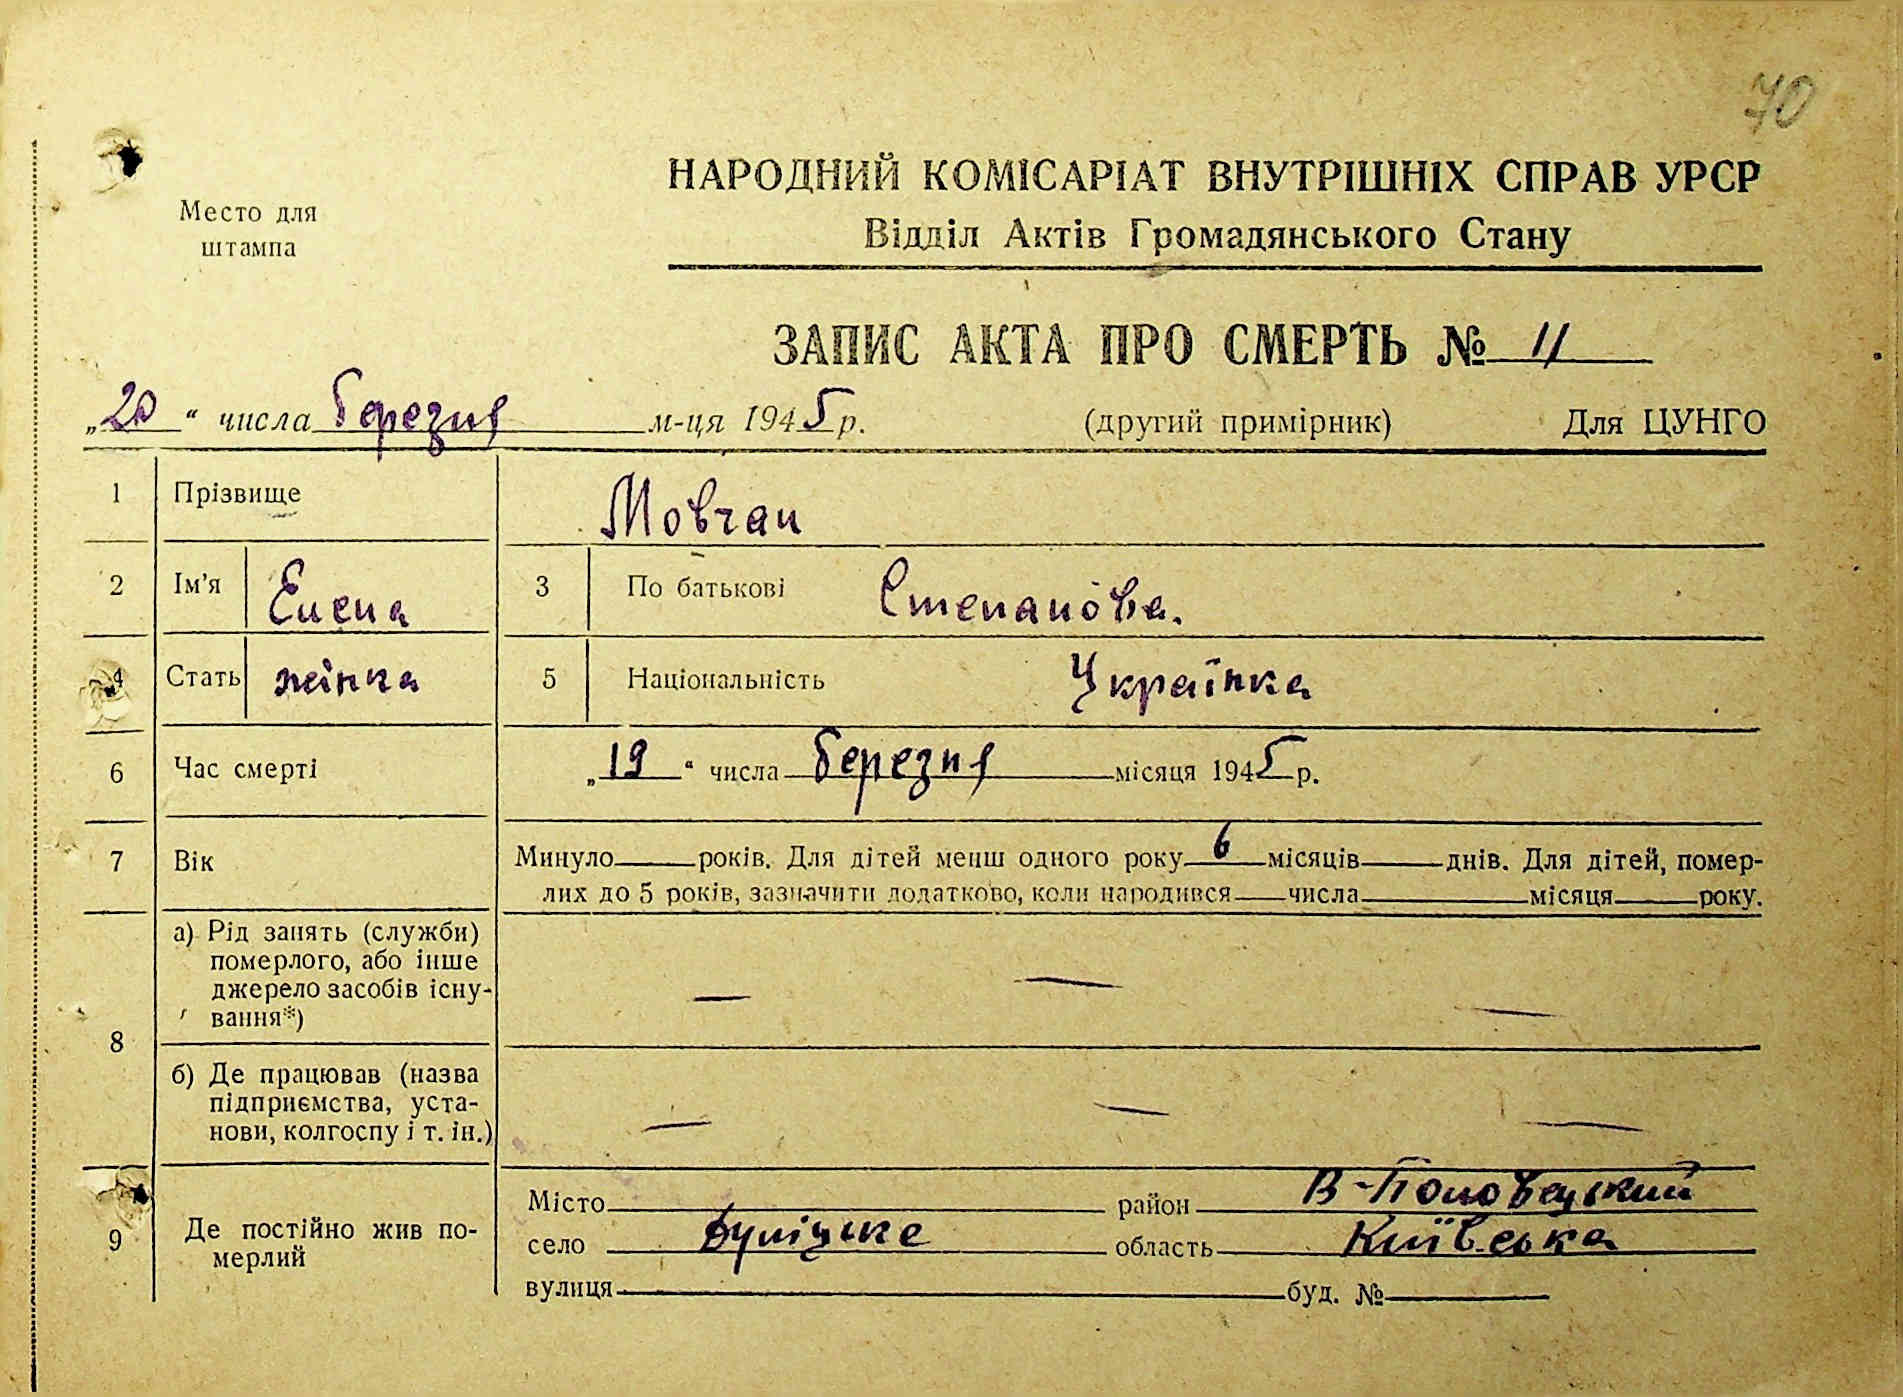 70
Место для
штампа
НАРОДНИЙ КОМІСАРІАТ ВНУТРІШНІХ СПРАВ УРСР
Відділ Актів Громадянського Стану
ЗАПИС АКТА ПРО СМЕРТЬ № 11
„20“ числа березня м-ця 1945 р. (другий примірник) Для ЦУНГО
1 Прізвище Мовчан
2 Ім'я Елена 3 По батькові Степанова.
4 Стать жінка 5 Національність Українка
6 Час смерті „19“ числа березня місяця 1945 р.
7 Вік Минуло років. Для дітей менш одного року 6 місяців днів. Для дітей, помер-
лих до 5 років, зазначити додатково, коли народився числа місяця року.
8 а) Рід занять (служби)
померлого, або інше
джерело засобів існу-
вання*)
— — —
б) Де працював (назва
підприємства, уста-
нови, колгоспу і т. ін.)
— — —
9 Де постійно жив по-
мерлий
Місто район В-Половецький
село область Київська
вулиця буд. №